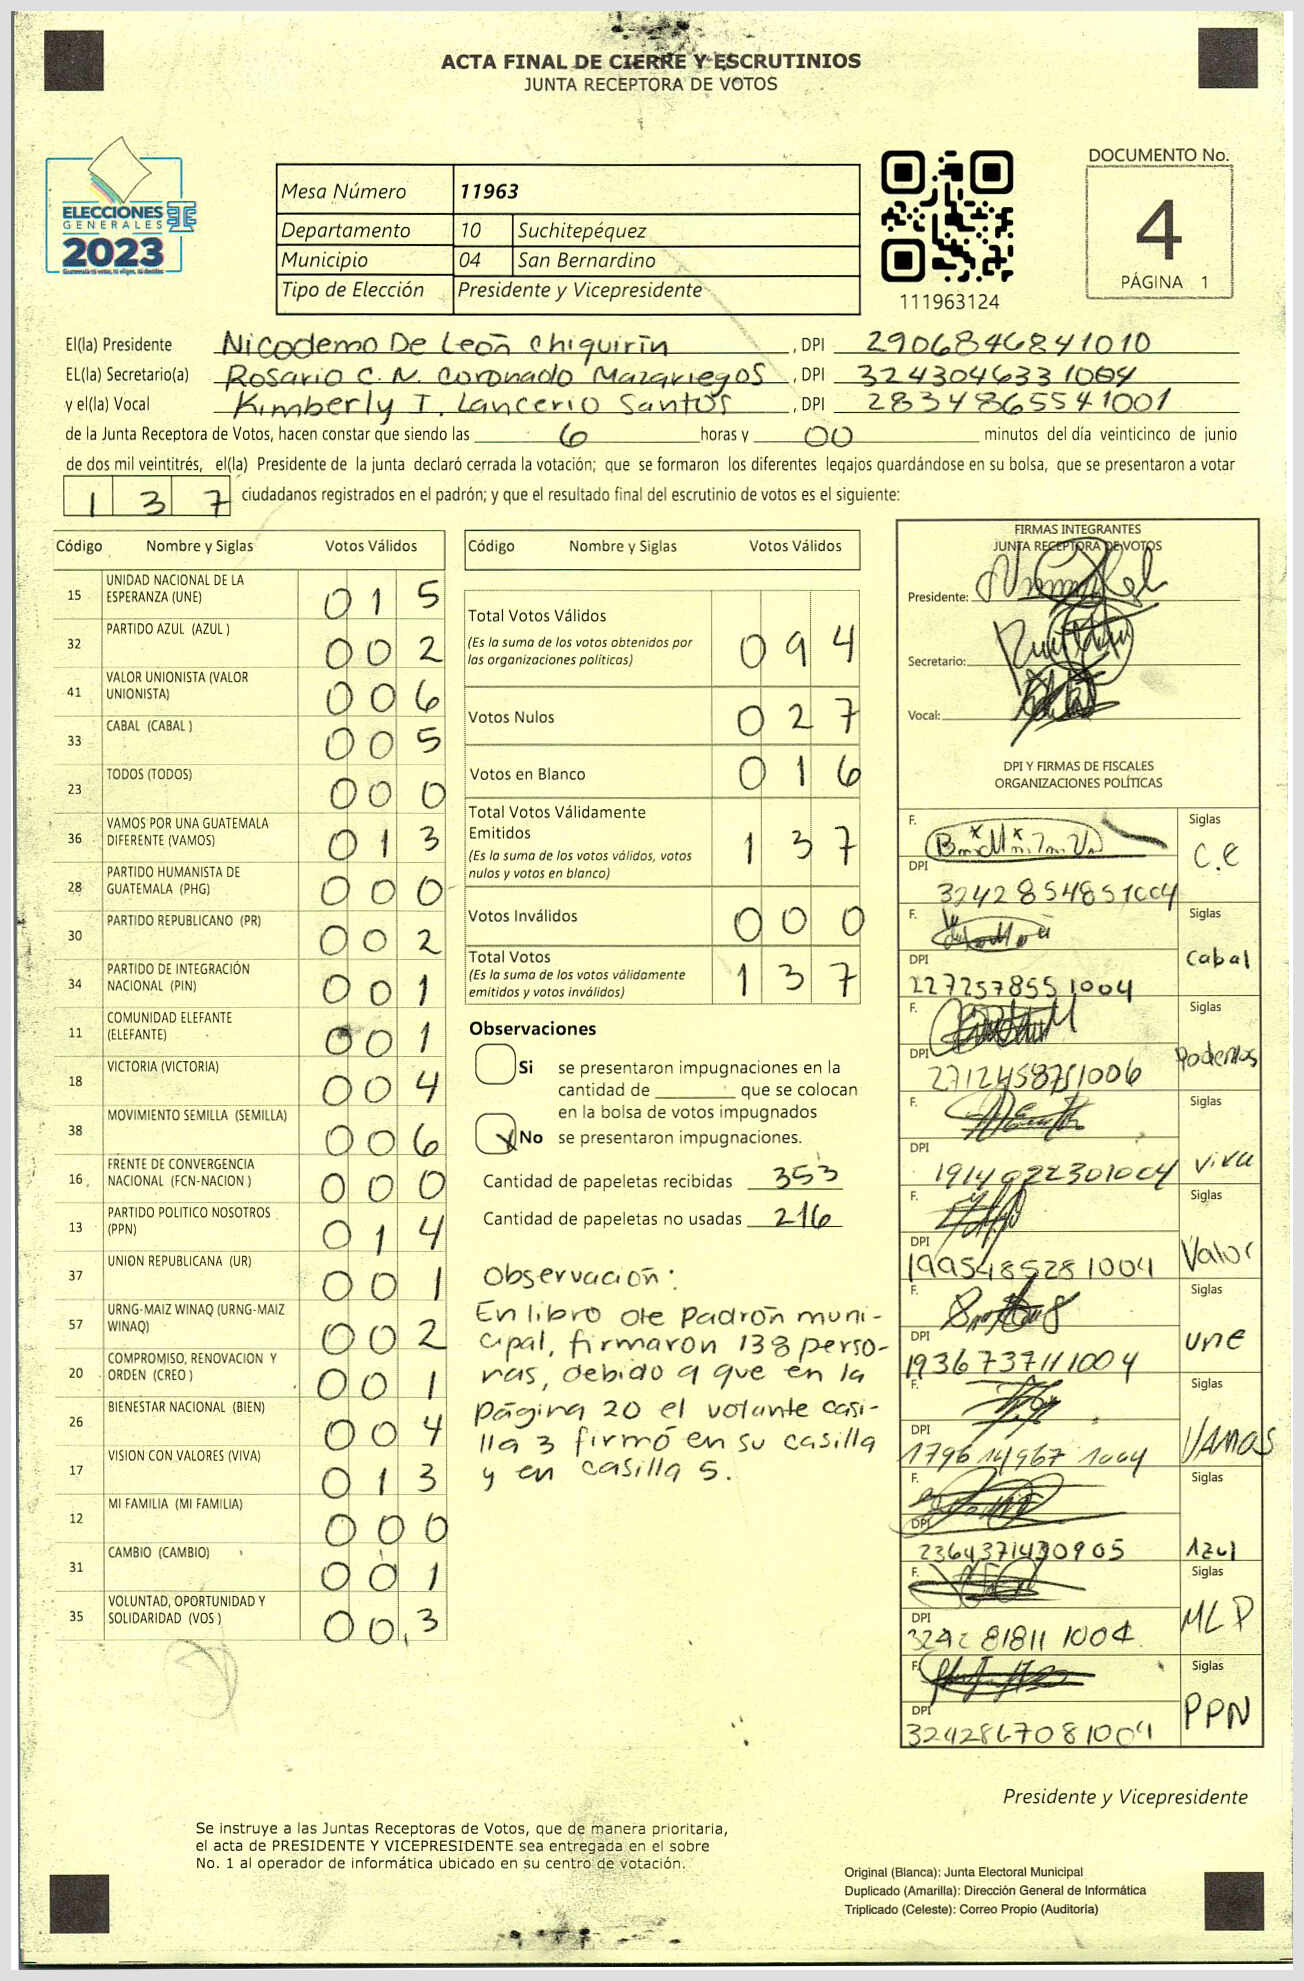 ACTA FINAL DE CIERRE Y ESCRUTINIOS
JUNTA RECEPTORA DE VOTOS
ELECCIONES
GENERALES
2023
Mesa Número 11963
Departamento 10 Suchitepéquez
Municipio 04 San Bernardino
Tipo de Elección Presidente y Vicepresidente
111963124
DOCUMENTO No.
4
PÁGINA 1
El(la) Presidente Nicodemo De León Chiquirín , DPI 2906846841010
EL(la) Secretario(a) Rosario C. N. Coronado Mazariegos , DPI 3243046331004
y el(la) Vocal Kimberly T. Lancerio Santos , DPI 2834865541001
de la Junta Receptora de Votos, hacen constar que siendo las 6 horas y 00 minutos del día veinticinco de junio
de dos mil veintitrés, el(la) Presidente de la junta declaró cerrada la votación; que se formaron los diferentes legajos guardándose en su bolsa, que se presentaron a votar
137 ciudadanos registrados en el padrón; y que el resultado final del escrutinio de votos es el siguiente:
Código Nombre y Siglas Votos Válidos
15 UNIDAD NACIONAL DE LA ESPERANZA (UNE) 015
32 PARTIDO AZUL (AZUL ) 002
41 VALOR UNIONISTA (VALOR UNIONISTA) 006
33 CABAL (CABAL ) 005
23 TODOS (TODOS) 000
36 VAMOS POR UNA GUATEMALA DIFERENTE (VAMOS) 013
28 PARTIDO HUMANISTA DE GUATEMALA (PHG) 000
30 PARTIDO REPUBLICANO (PR) 002
34 PARTIDO DE INTEGRACIÓN NACIONAL (PIN) 001
11 COMUNIDAD ELEFANTE (ELEFANTE) 001
18 VICTORIA (VICTORIA) 004
38 MOVIMIENTO SEMILLA (SEMILLA) 006
16 FRENTE DE CONVERGENCIA NACIONAL (FCN-NACION ) 000
13 PARTIDO POLITICO NOSOTROS (PPN) 014
37 UNION REPUBLICANA (UR) 001
57 URNG-MAIZ WINAQ (URNG-MAIZ WINAQ) 002
20 COMPROMISO, RENOVACION Y ORDEN (CREO ) 001
26 BIENESTAR NACIONAL (BIEN) 004
17 VISION CON VALORES (VIVA) 013
12 MI FAMILIA (MI FAMILIA) 000
31 CAMBIO (CAMBIO) 001
35 VOLUNTAD, OPORTUNIDAD Y SOLIDARIDAD (VOS ) 003
Código Nombre y Siglas Votos Válidos
Total Votos Válidos 094
(Es la suma de los votos obtenidos por
las organizaciones políticas)
Votos Nulos 027
Votos en Blanco 016
Total Votos Válidamente
Emitidos 137
(Es la suma de los votos válidos, votos
nulos y votos en blanco)
Votos Inválidos 000
Total Votos 137
(Es la suma de los votos válidamente
emitidos y votos inválidos)
Observaciones
Si se presentaron impugnaciones en la
cantidad de que se colocan
en la bolsa de votos impugnados
X No se presentaron impugnaciones.
Cantidad de papeletas recibidas 353
Cantidad de papeletas no usadas 216
Observación:
En libro de Padrón muni-
cipal, firmaron 138 perso-
nas, debido a que en la
página 20 el votante casi-
lla 3 firmó en su casilla
y en casilla 5.
FIRMAS INTEGRANTES
JUNTA RECEPTORA DE VOTOS
Presidente:
Secretario:
Vocal:
DPI Y FIRMAS DE FISCALES
ORGANIZACIONES POLÍTICAS
F. Siglas
DPI 3242854851004 C.E
F. Siglas
DPI 2272578551004 Cabal
F. Siglas
DPI Podemos
F. Siglas
DPI 1914022301004 Viva
F. Siglas
DPI 1995485281004 Valor
F. Siglas
DPI 1936737111004 une
F. Siglas
DPI 1796149671004 VAMOS
F. Siglas
DPI 2364371430905 Azul
F. Siglas
DPI 3242818111004 MLP
F. Siglas
DPI 3242867081004 PPN
Presidente y Vicepresidente
Se instruye a las Juntas Receptoras de Votos, que de manera prioritaria,
el acta de PRESIDENTE Y VICEPRESIDENTE sea entregada en el sobre
No. 1 al operador de informática ubicado en su centro de votación.
Original (Blanca): Junta Electoral Municipal
Duplicado (Amarilla): Dirección General de Informática
Triplicado (Celeste): Correo Propio (Auditoría)